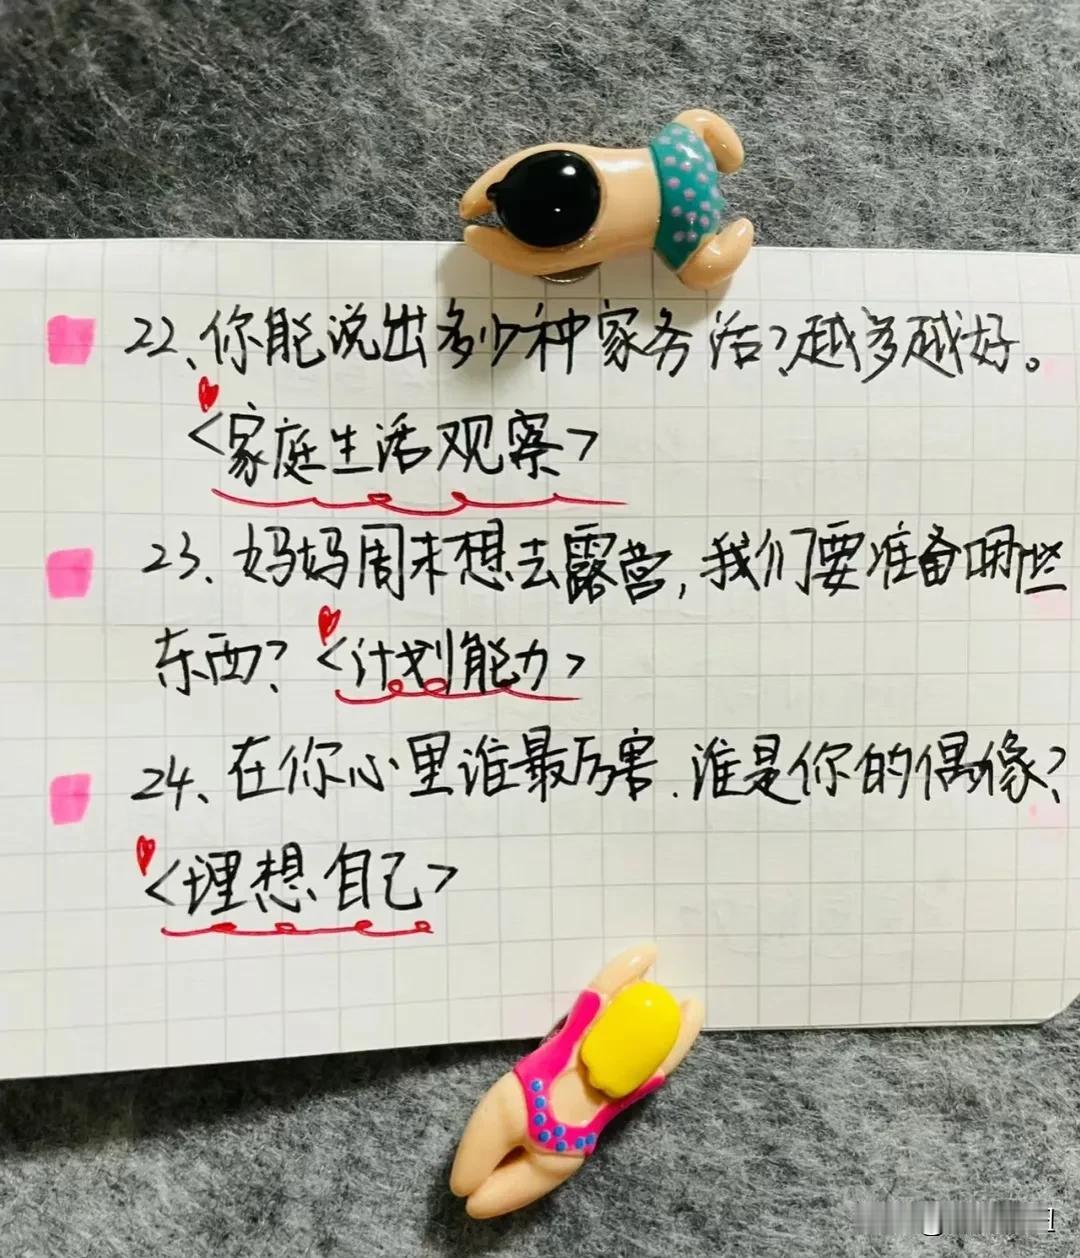 22、你能说出多少种家务活?越多越好。
<家庭生活观察>
23、妈妈周末想去露营,我们要准备哪些
东西?<计划能力>
24、在你心里谁最厉害.谁是你的偶像?
<理想自己>